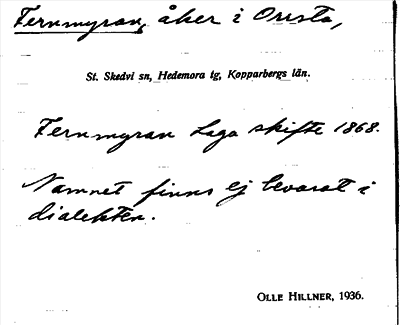 Fernmyran, åker i Orsta,
St. Skedvi sn, Hedemora tg, Kopparbergs län.
Fernmyran Laga skifte 1868.
Namnet finns ej bevarat i
dialekten.
OLLE HILLNER, 1936.